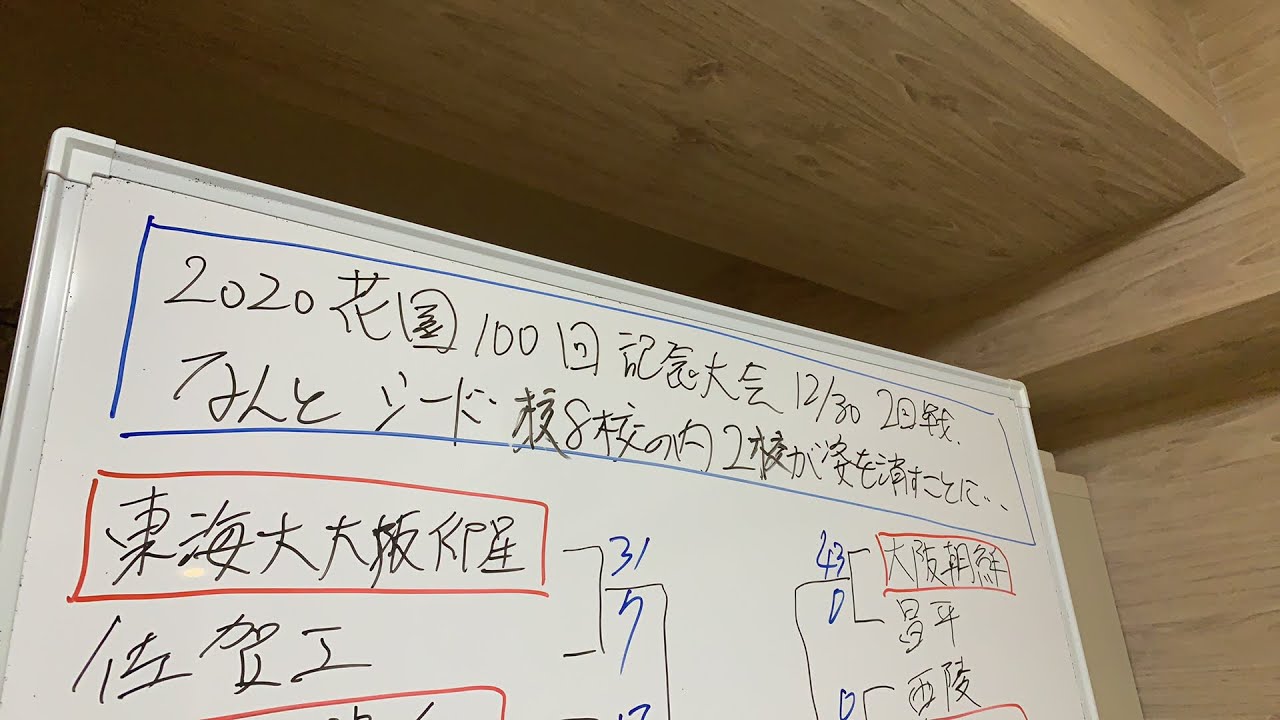 2020花園100回記念大会 12/30 2回戦.
なんと シード校8校の内2校が姿を消すことに・・
東海大大阪仰星
31
佐賀工
7
43
大阪朝鮮
0
昌平
0
西陵